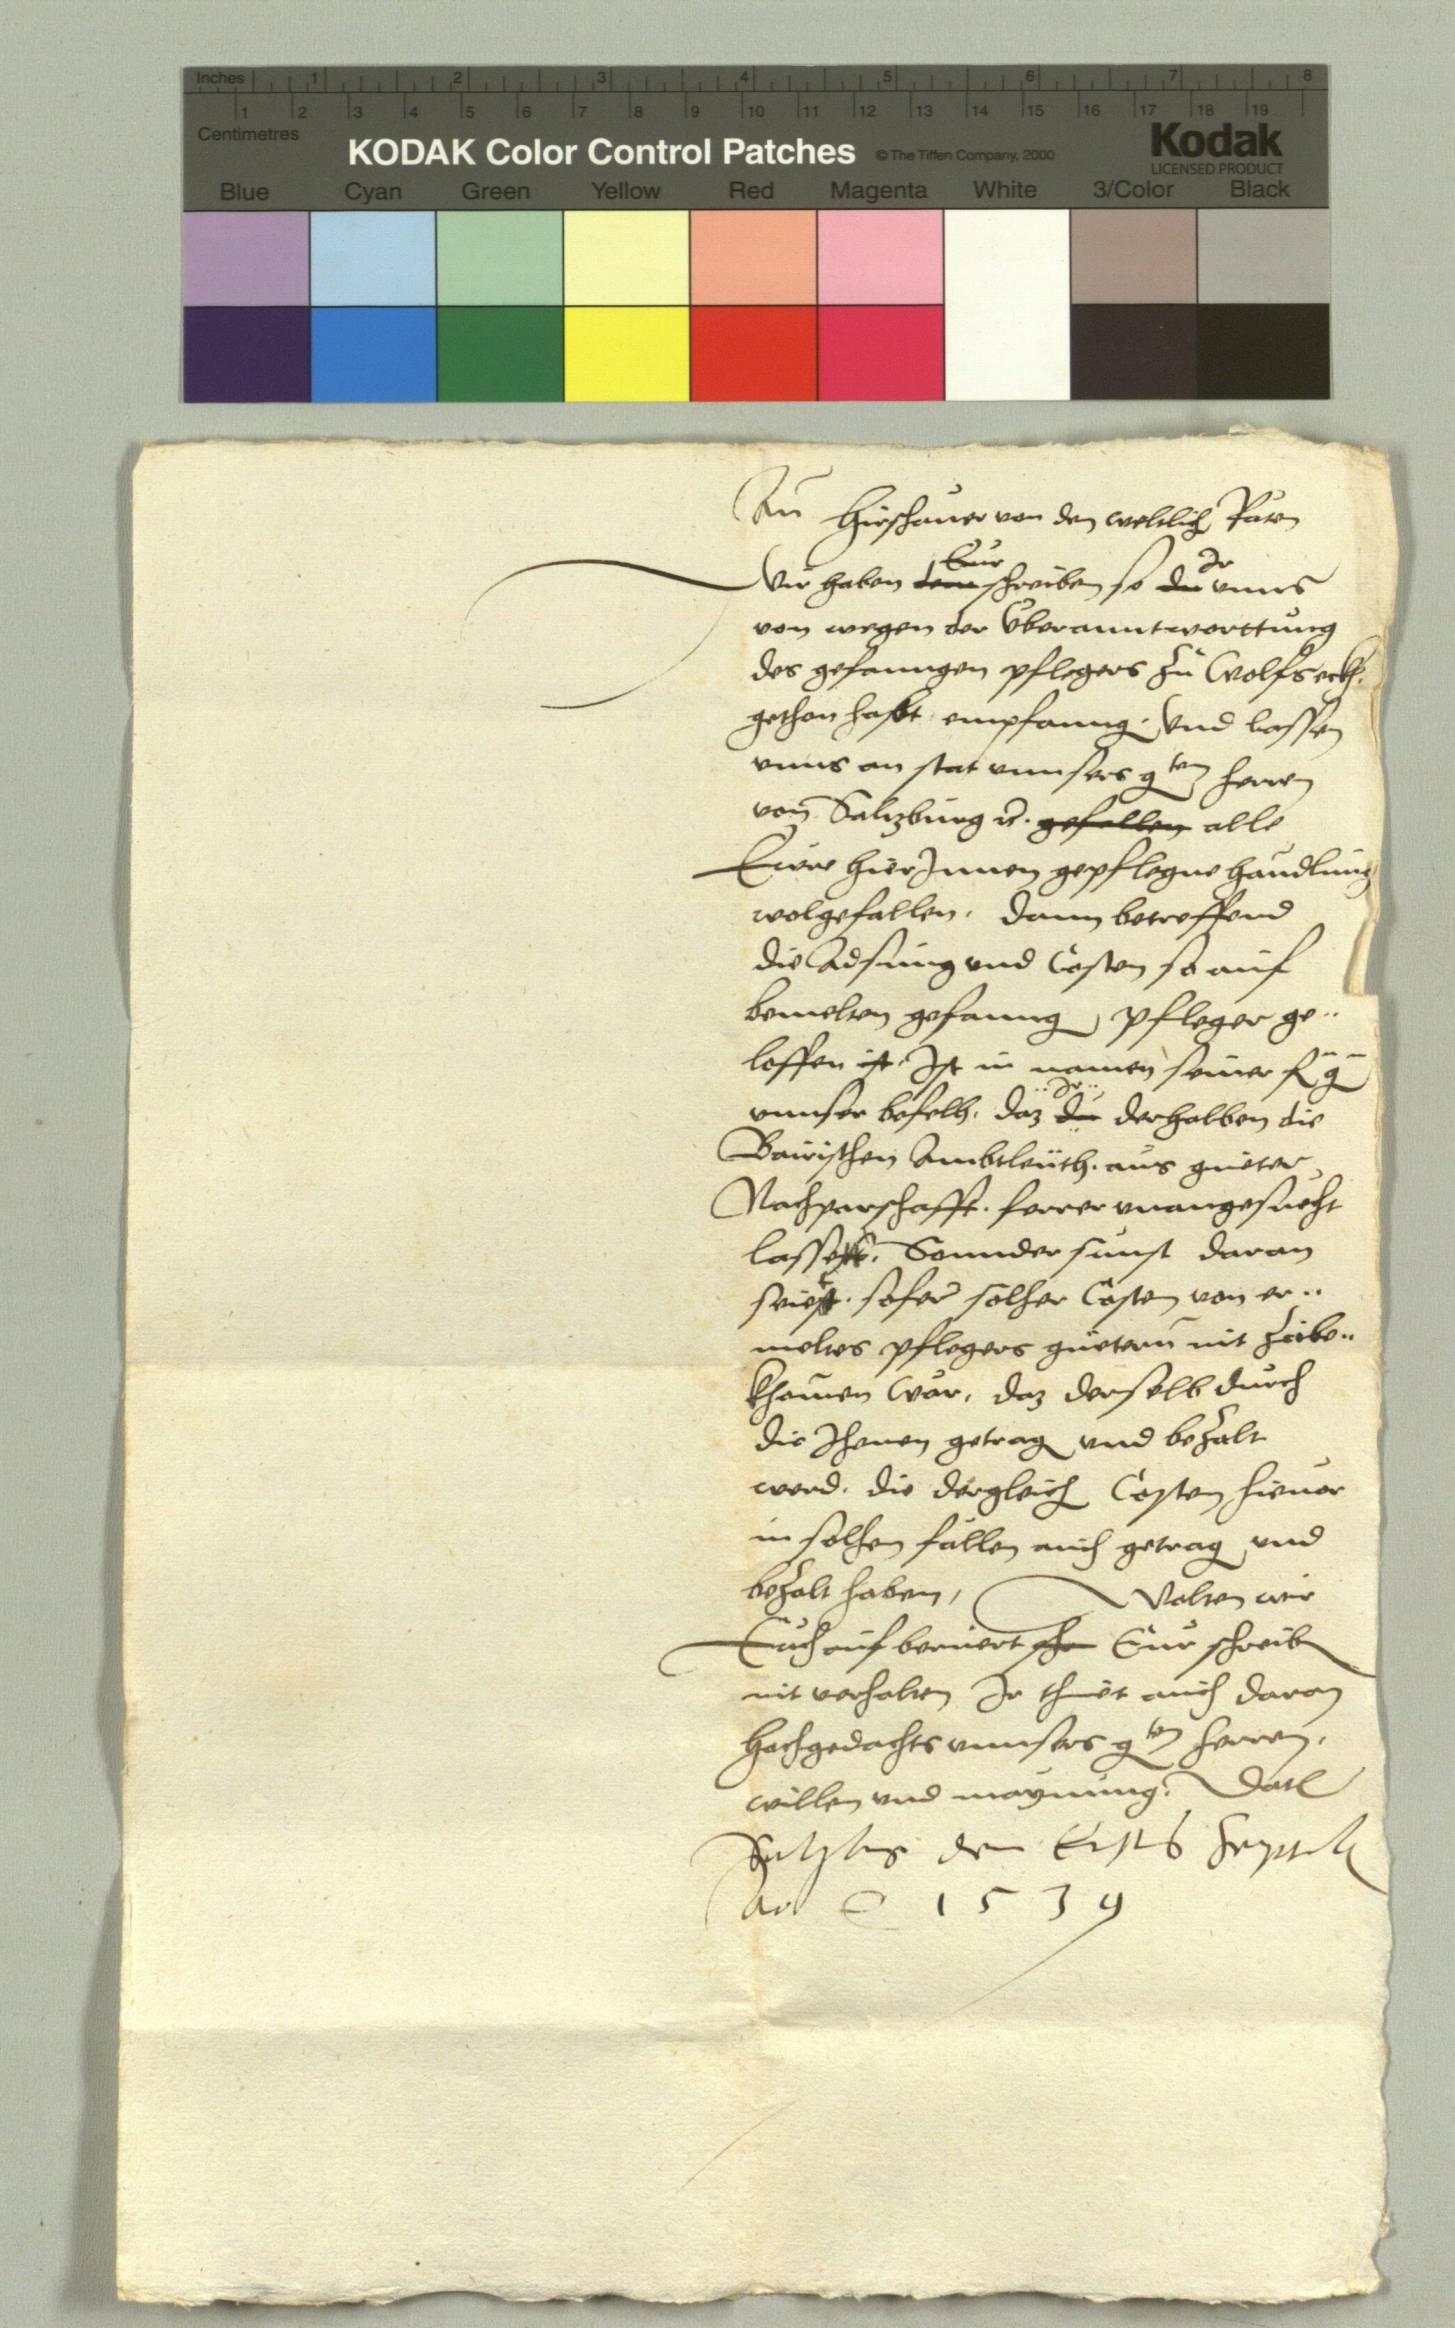 Inches 1 2 3 4 5 6 7 8
1 2 3 4 5 6 7 8 9 10 11 12 13 14 15 16 17 18 19
Centimetres
KODAK Color Control Patches © The Tiffen Company, 2000 Kodak
LICENSED PRODUCT
Blue Cyan Green Yellow Red Magenta White 3/Color Black
An Hirschauer von den weltlich Räten
Eur Ir
Wir haben schreiben so du unns
von wegen der Überanntworttung
des gefanngen pflegers zu Wolfsekh.
gethon habt empfanng. Und lassen
unns an stat unnsers gten herren
von Saltzburg etc. gefallen alle
Eure hierInnen gepflegne handlung
wolgefallen. dann betreffend
die Adsung und Cossten so auf
bemelten gefanng pfleger ge..
loffen ist. Ist in namen seiner f g
Ir
unnser befelh. daz du derhalben die
Bairischen Ambtleuth. aus gueter
Nachparschafft. ferrer unangesucht
lasset. Sonnder sunst daran
seiet. sofer solher Cossten von er..
meltes pflegers guetern nit zube..
khomen wär, daz derselb durch
die Jhenen getrag und bezalt
werd. die dergleich Cossten hievor
in solhen fällen auch getrag und
bezalt haben, Wolten wir
Euch auf beruert Eur schreib
nit verhalten Ir thuet auch daran
hochgedachts unnsers gten herren,
willen und maynung. Dat
Saltzburg den Erssten Septemb
An 1539